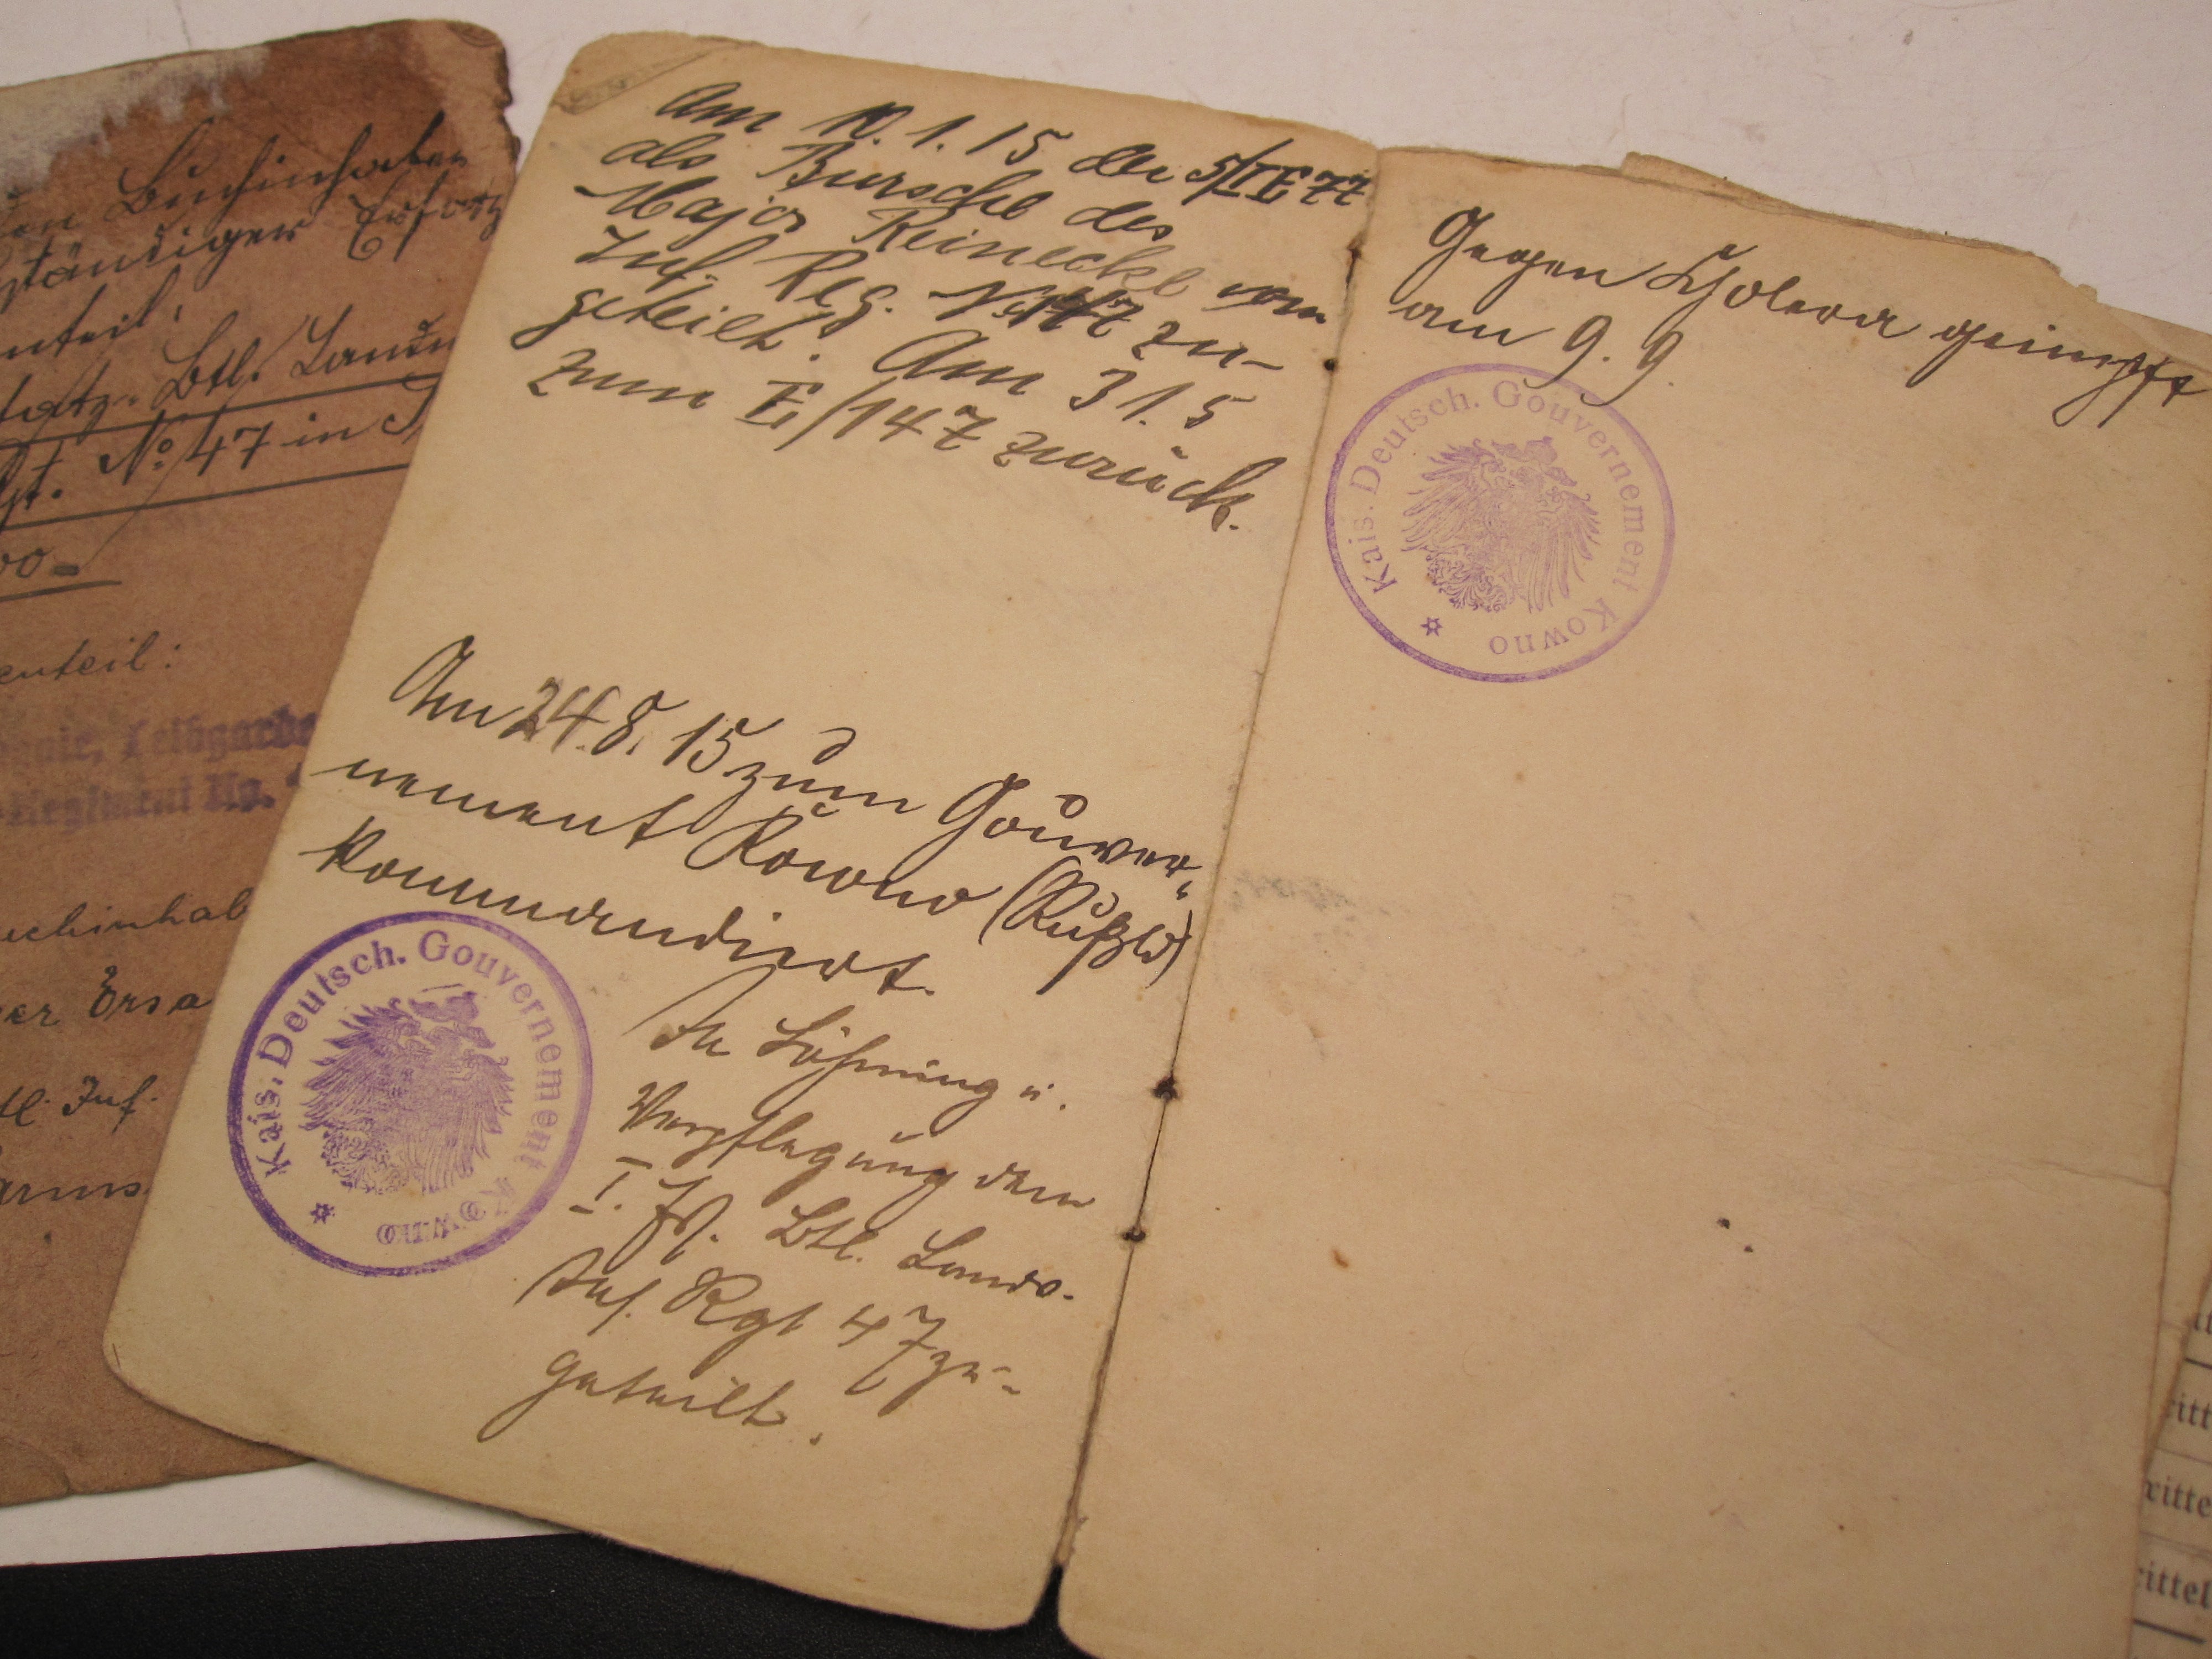 Buchinhaber
ständiger Ersatz
nteil:
satz. Btl. Landw
gt. No. 47 in
00=
enteil:
Leibgarde
Regiment No.
uchinhab
er Ersa
tl. Inf.
Am 10.1.15 der 5/II E 77
als Bursche des
Major Reinecke vom
Inf. Reg. No. zu-
geteilt. Am 31.5
zum E/147 zurück.
Am 24.8.15 zum Gouver-
nement Kowno (Rußld)
kommandiert.
Kais. Deutsch. Gouvernement Kowno
In Löhnung u.
Verpflegung dem
I. Btl. Landw.
Inf. Rgt 47 zu-
geteilt.
Gegen Cholera geimpft
am 9. 9.
Kais. Deutsch. Gouvernement Kowno
itt
ritte
rittel